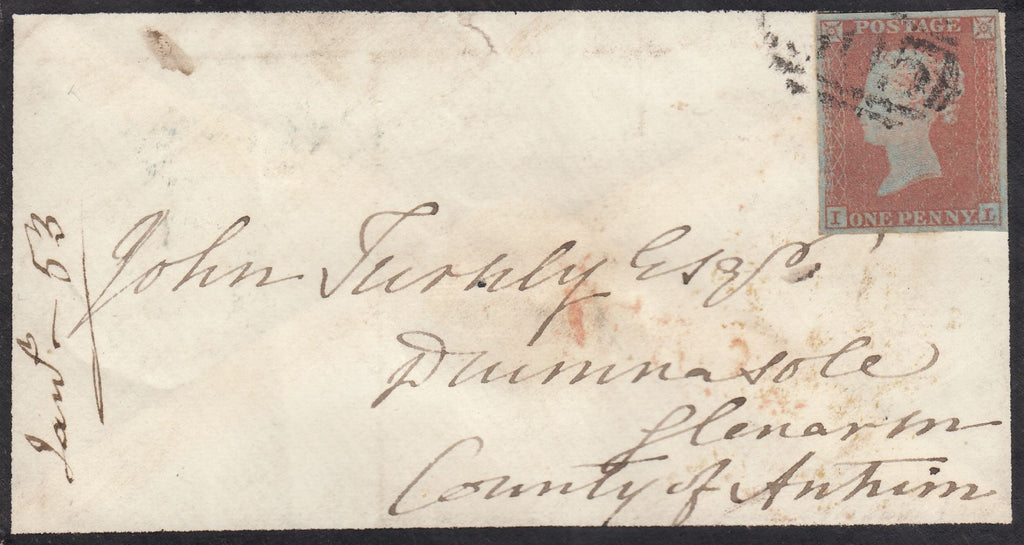 POSTAGE
I ONE PENNY L
Jany - 53
John Turnly Esqr
Drumnasole
Glenarm
County of Antrim